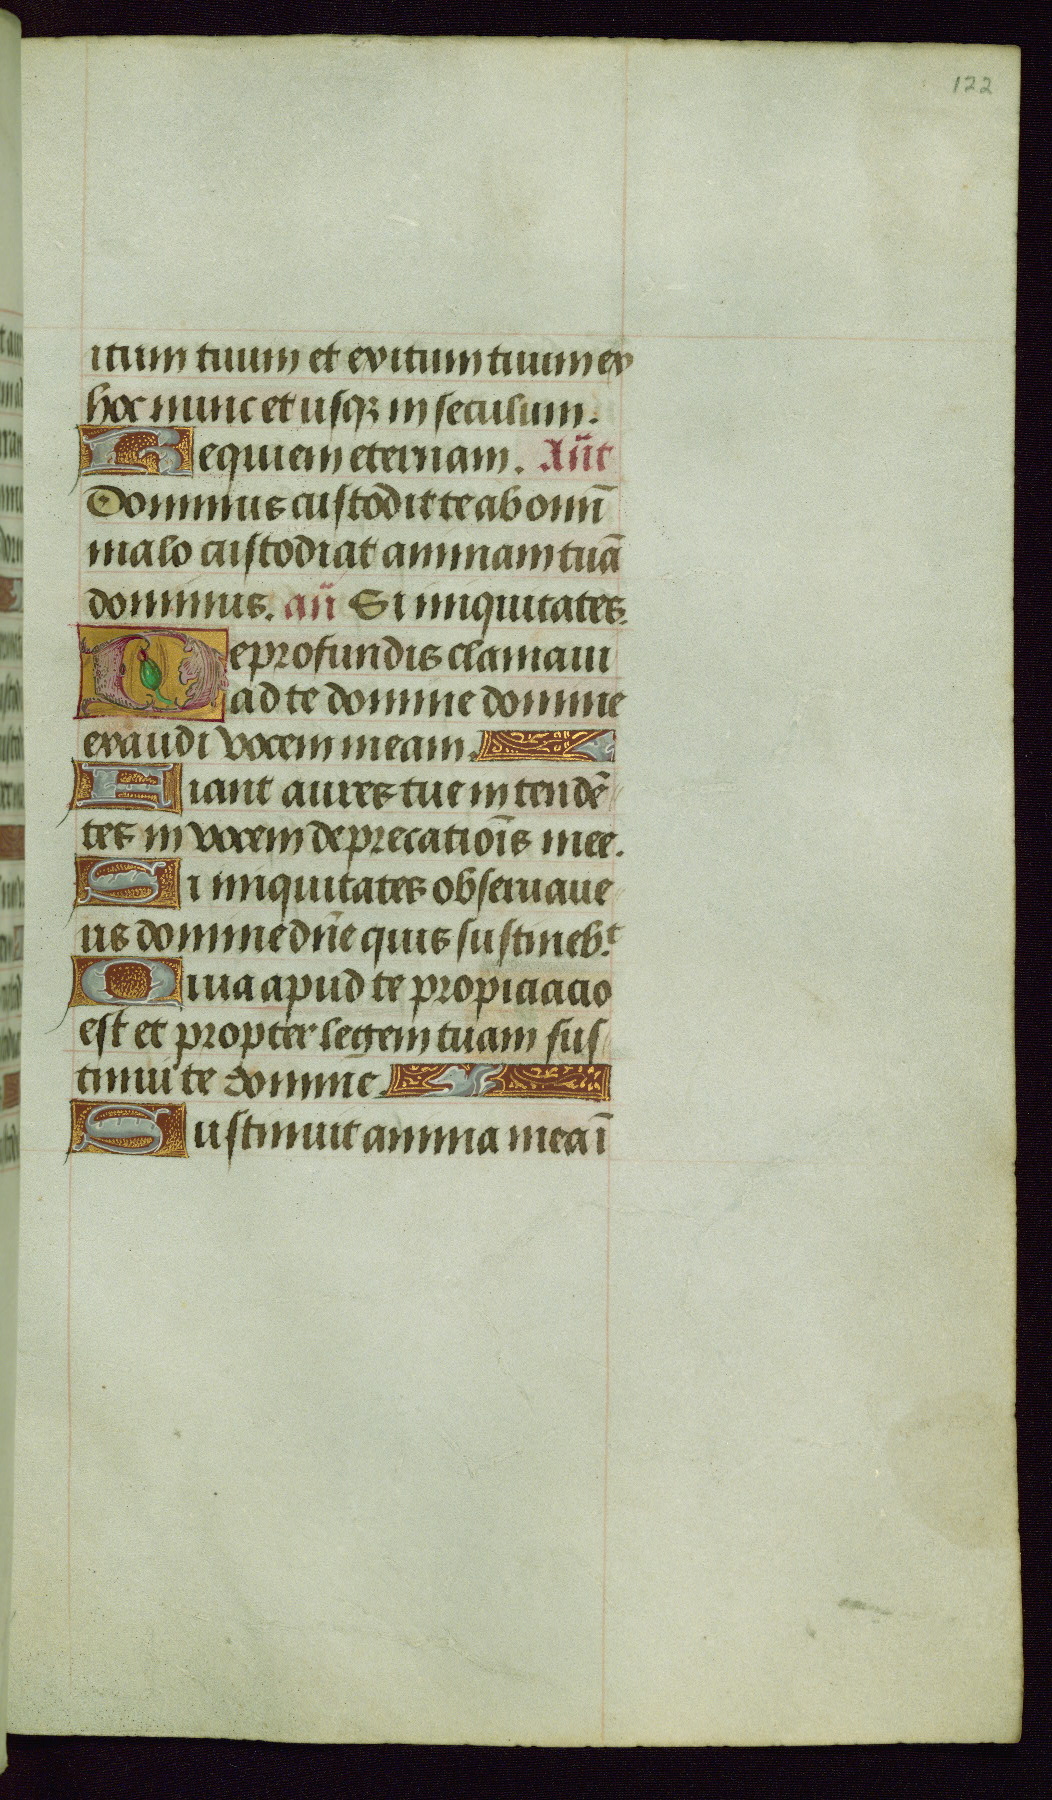 122
itum tuum et exitum tuum ex
hoc nunc et usqꝫ in seculum.
Requiem eternam. Añt
Dominus custodit te ab omnī
malo custodiat animam tuā
dominus. añ Si iniquitates.
De profundis clamaui
ad te domine domine
exaudi vocem meam.
Fiant aures tue intendē
tes in vocem deprecatiōis mee.
Si iniquitates obseruaue
ris domine dn̄e quis sustineb.t
Quia apud te propiciacio
est et propter legem tuam sus
tinui te domine.
Sustinuit anima mea ī